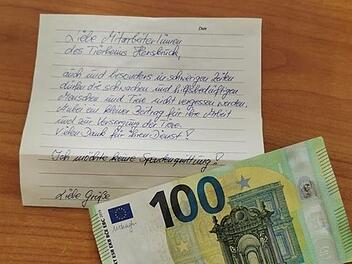 Date
Liebe MitarbeiterInnen
des Tierheims Hersbruck,
auch und besonders in schwierigen Zeiten
dürfen die schwachen und hilfsbedürftigen
Menschen und Tiere nicht vergessen werden.
Anbei ein kleiner Beitrag für Ihre Arbeit
und zur Versorgung der Tiere.
Vielen Dank für Ihren Dienst!
Ich möchte keine Spendenquittung!
Liebe Grüße
100